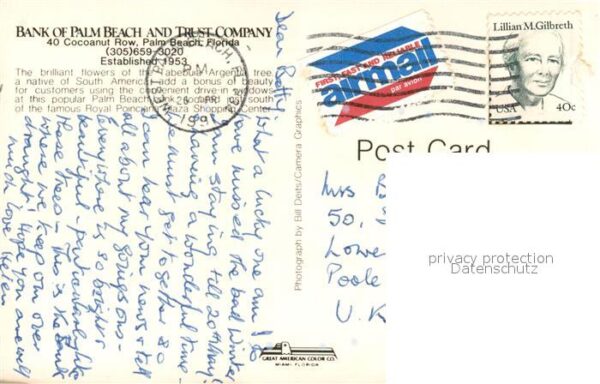 BANK OF PALM BEACH AND TRUST COMPANY
40 Cocoanut Row, Palm Beach, Florida
(305)659-3020
Established 1953
The brilliant flowers of the Tabebuia Argentea tree,
native of South America, add a bonus of beauty
for customers using the convenient drive-in windows
at this popular Palm Beach bank located just south
of the famous Royal Poinciana Plaza Shopping Center.
PM
Dear Betty
What a lucky one am I to
have missed the bad Winter.
Am staying till 20th May!
Having a wonderful time -
We must get together so
I can hear your news & tell
all about my goings ons -
Everywhere is so bright &
beautiful - particularly the
these trees - this is the Bank
where we keep our over
draught! Hope you are well
much love Helen
Photograph by Bill Deits/Camera Graphics
GREAT AMERICAN COLOR CO.
MIAMI, FLORIDA
FIRST, FAST AND RELIABLE
airmail
par avion
Lillian M. Gilbreth
USA 40c
Post Card
Mrs B
50,
Lowe
Poole
U.K
privacy protection
Datenschutz